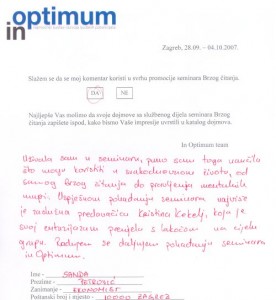 optimum
in
Zagreb, 28.09. - 04.10.2007.
Slažem se da se moj komentar koristi u svrhu promocije seminara Brzog čitanja.
DA NE
Najljepše Vas molimo da svoje dojmove sa službenog dijela seminara Brzog
čitanja zapišete ispod, kako bismo Vaše impresije uvrstili u katalog dojmova.
In Optimum team
Uživala sam u seminaru, puno sam toga naučila
što mogu koristiti u svakodnevnom životu, od
samog brzog čitanja do pravljenja mentalnih
mapa. Uspješnom pohađanju seminara najviše
je zaslužna predavačica Kristina, koja je
svoj entuzijazam prenijela s lakoćom na cijelu
grupu. Radujem se daljnjem pohađanju seminara
In Optimum.
Ime - SANDA
Prezime - PETROVIĆ
Zanimanje - EKONOMIST
Poštanski broj i mjesto - 10000 ZAGREB